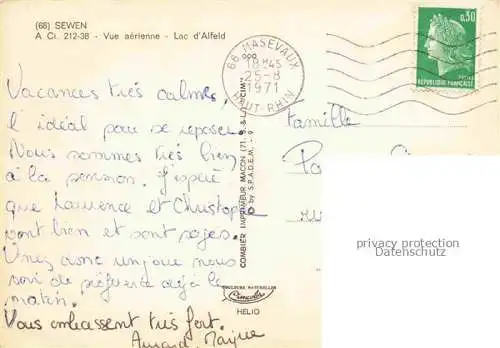 (68) SEWEN
A Ct. 212-38 - Vue aérienne - Lac d'Alfeld
68 MASEVAUX
18H45
25-8
1971
HAUT-RHIN
0,30
REPUBLIQUE FRANÇAISE
Vacances très calmes,
l'idéal pour se reposer.
Nous sommes très bien
à la pension. J'espère
que Laurence et Christophe
vont bien et sont sages.
Venez donc un jour nous
voir de préférence déjà le
matin.
Vous embrassent très fort.
COMBIER IMPRIMEUR MACON
by S.P.A.D.E.M.
COULEURS NATURELLES
Cimcolor
HELIO
Famille
privacy protection
Datenschutz